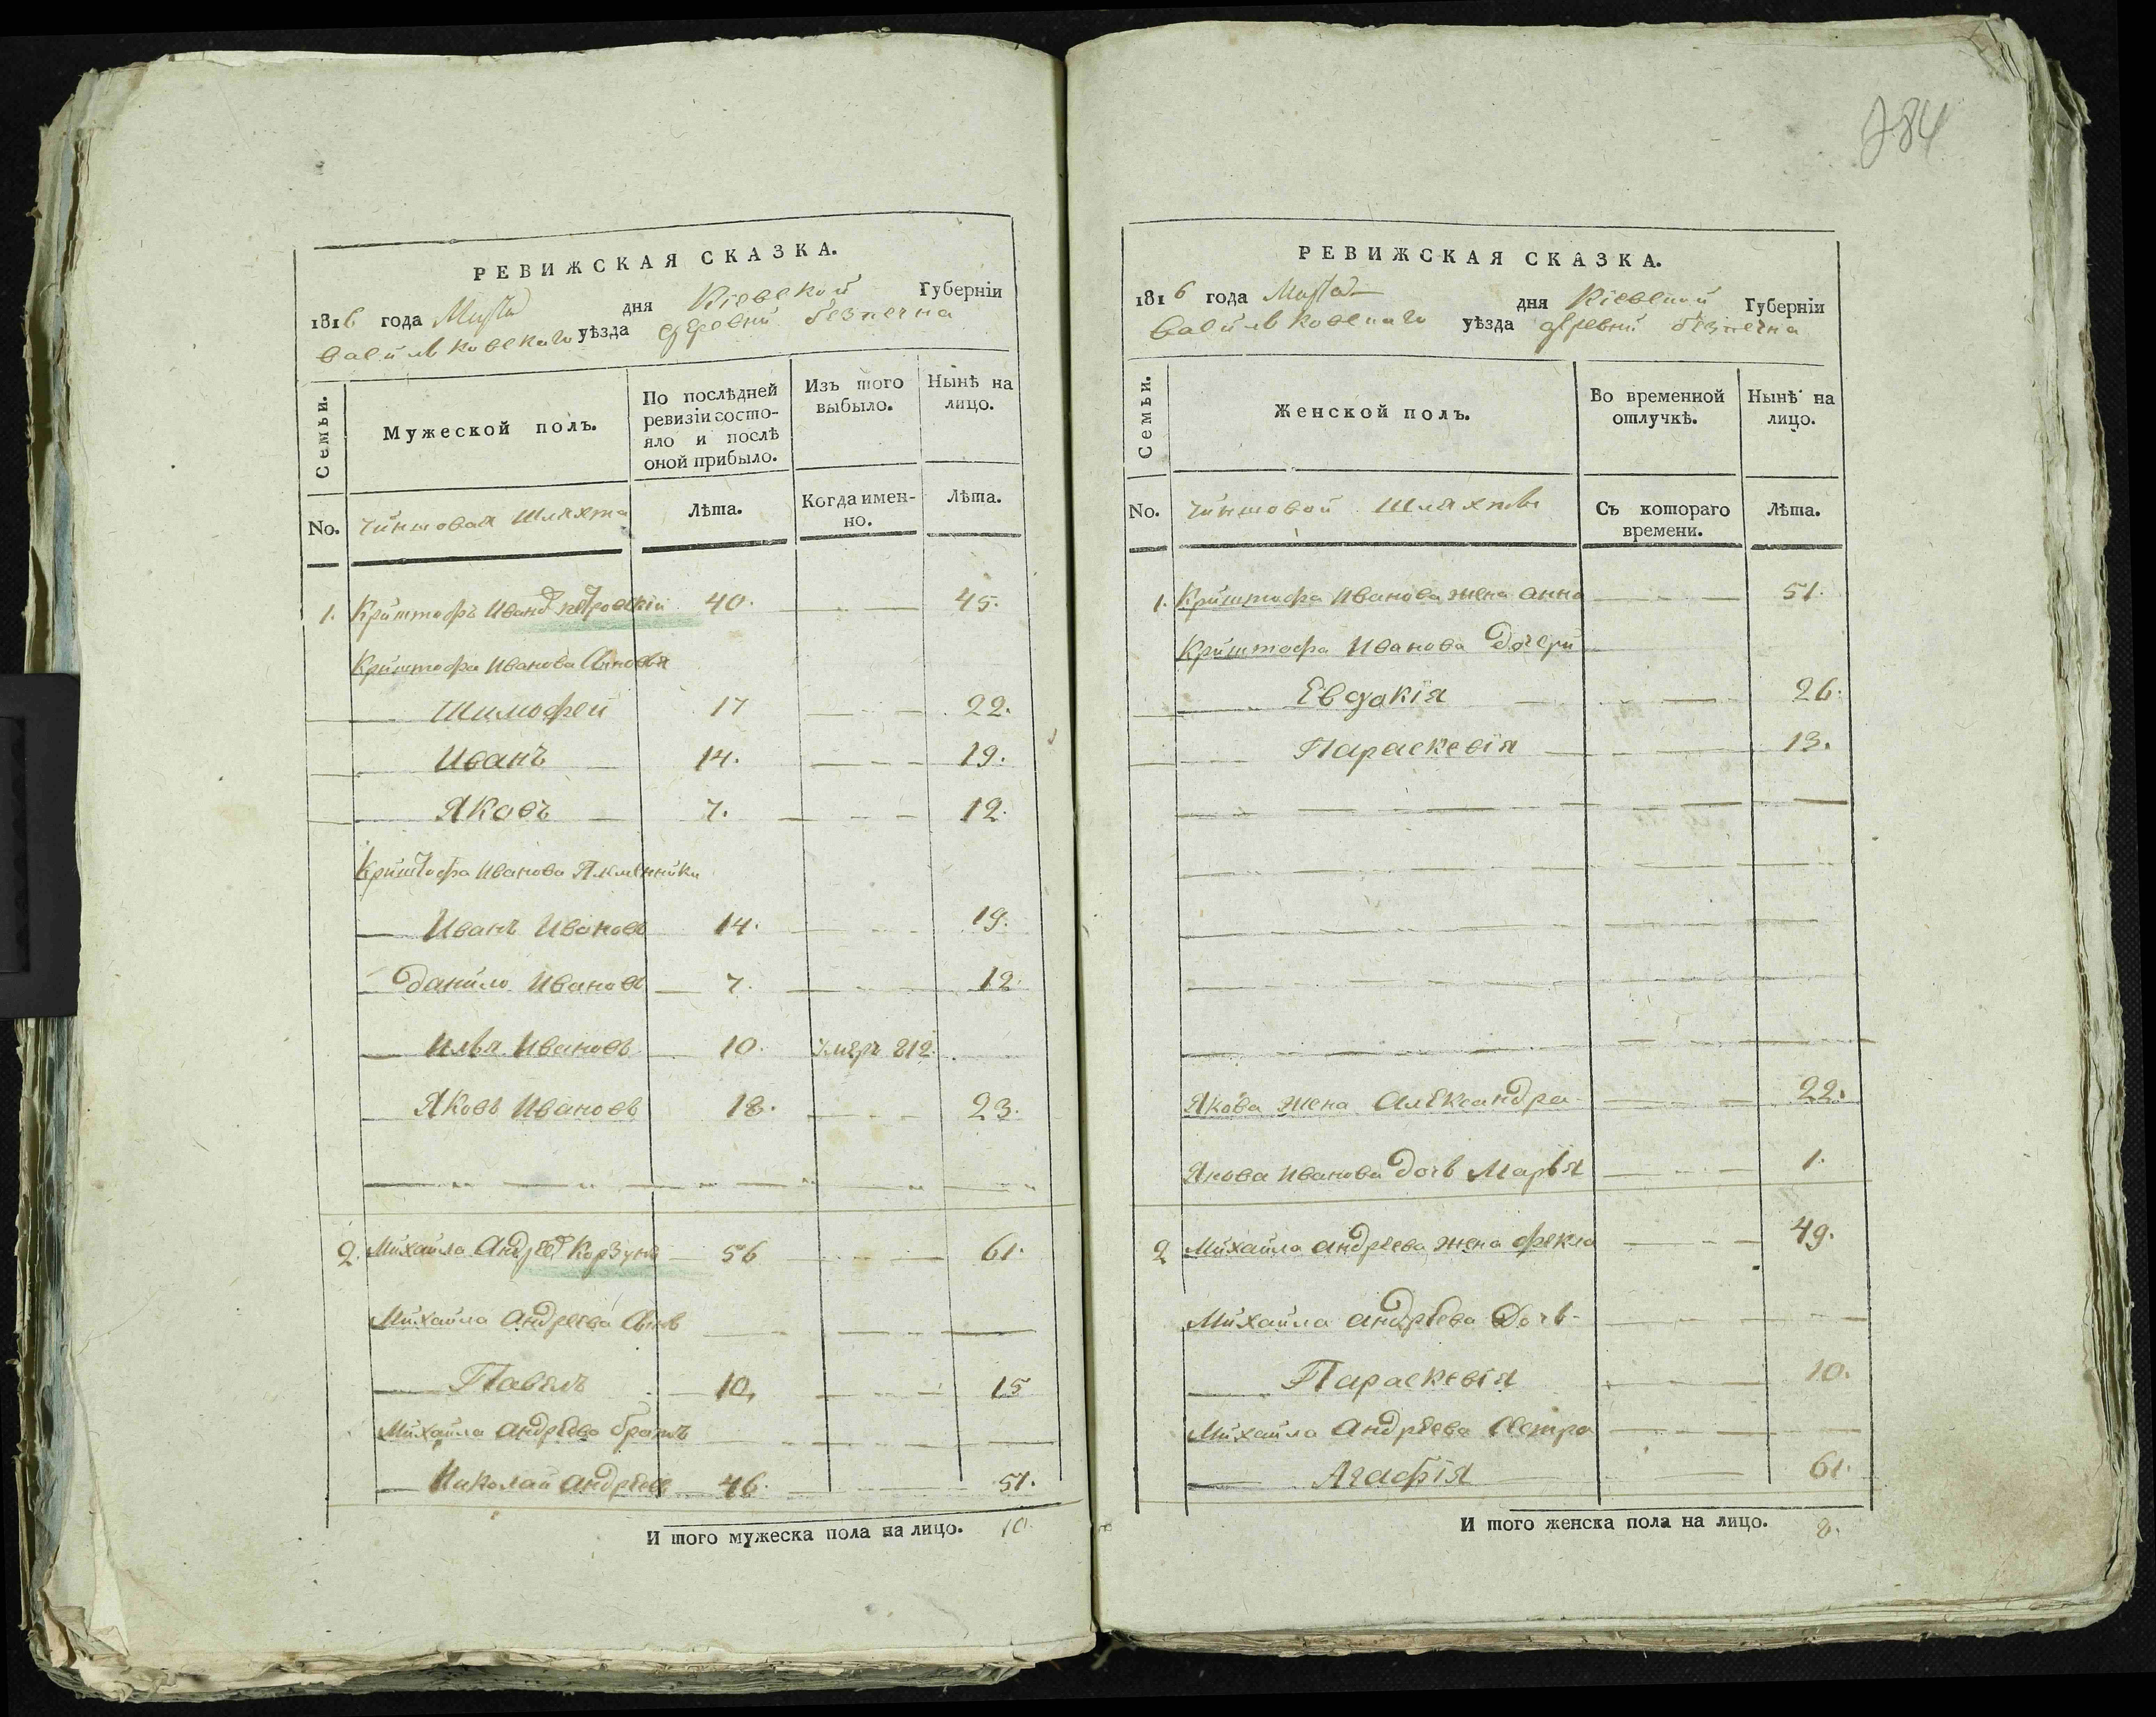 284
РЕВИЖСКАЯ СКАЗКА.
1816 года Марта дня Кіевской Губерніи
Васильковскаго уѣзда деревни безпечна
Семьи.
Мужеской полъ.
По послѣдней ревизіи состо-
яло и послѣ оной прибыло.
Изъ того выбыло.
Нынѣ на лицо.
No. Чиншовая Шляхта
Лѣта.
Когда имен-
но.
Лѣта.
1. Криштофъ Иванов Петровскій 40. 45.
Криштофа Иванова Сыновья
Тимофей 17 22.
Иванъ 14. 19.
Яковъ 7. 12.
Криштофа Иванова Племянники
Иванъ Ивановъ 14. 19.
Данило Ивановъ 7. 12.
Илья Ивановъ 10. умеръ 812.
Яковъ Ивановъ 18. 23.
2. Михайла Андреев Корзунъ 56 61.
Михайла Андреева Сынъ
Павелъ 10. 15
Михайла Андреева братъ
Николай Андреевъ 46. 51.
И того мужеска пола на лицо. 10.
РЕВИЖСКАЯ СКАЗКА.
1816 года Марта дня Кіевской Губерніи
Васильковскаго уѣзда деревни безпечна
Семьи.
Женской полъ.
Во временной отлучкѣ.
Нынѣ на лицо.
No. Чиншовой Шляхты
Съ котораго времени.
Лѣта.
1. Криштофа Иванова жена анна 51.
Криштофа Иванова Дочери
Евдокія 26.
Параскевія 13.
Якова жена Александра 22.
Якова Иванова дочь Марья 1.
2 Михайла Андреева жена фекла 49.
Михайла Андреева Дочь
Параскевія 10.
Михайла Андреева Сестра
Агафія 61.
И того женска пола на лицо. 8.